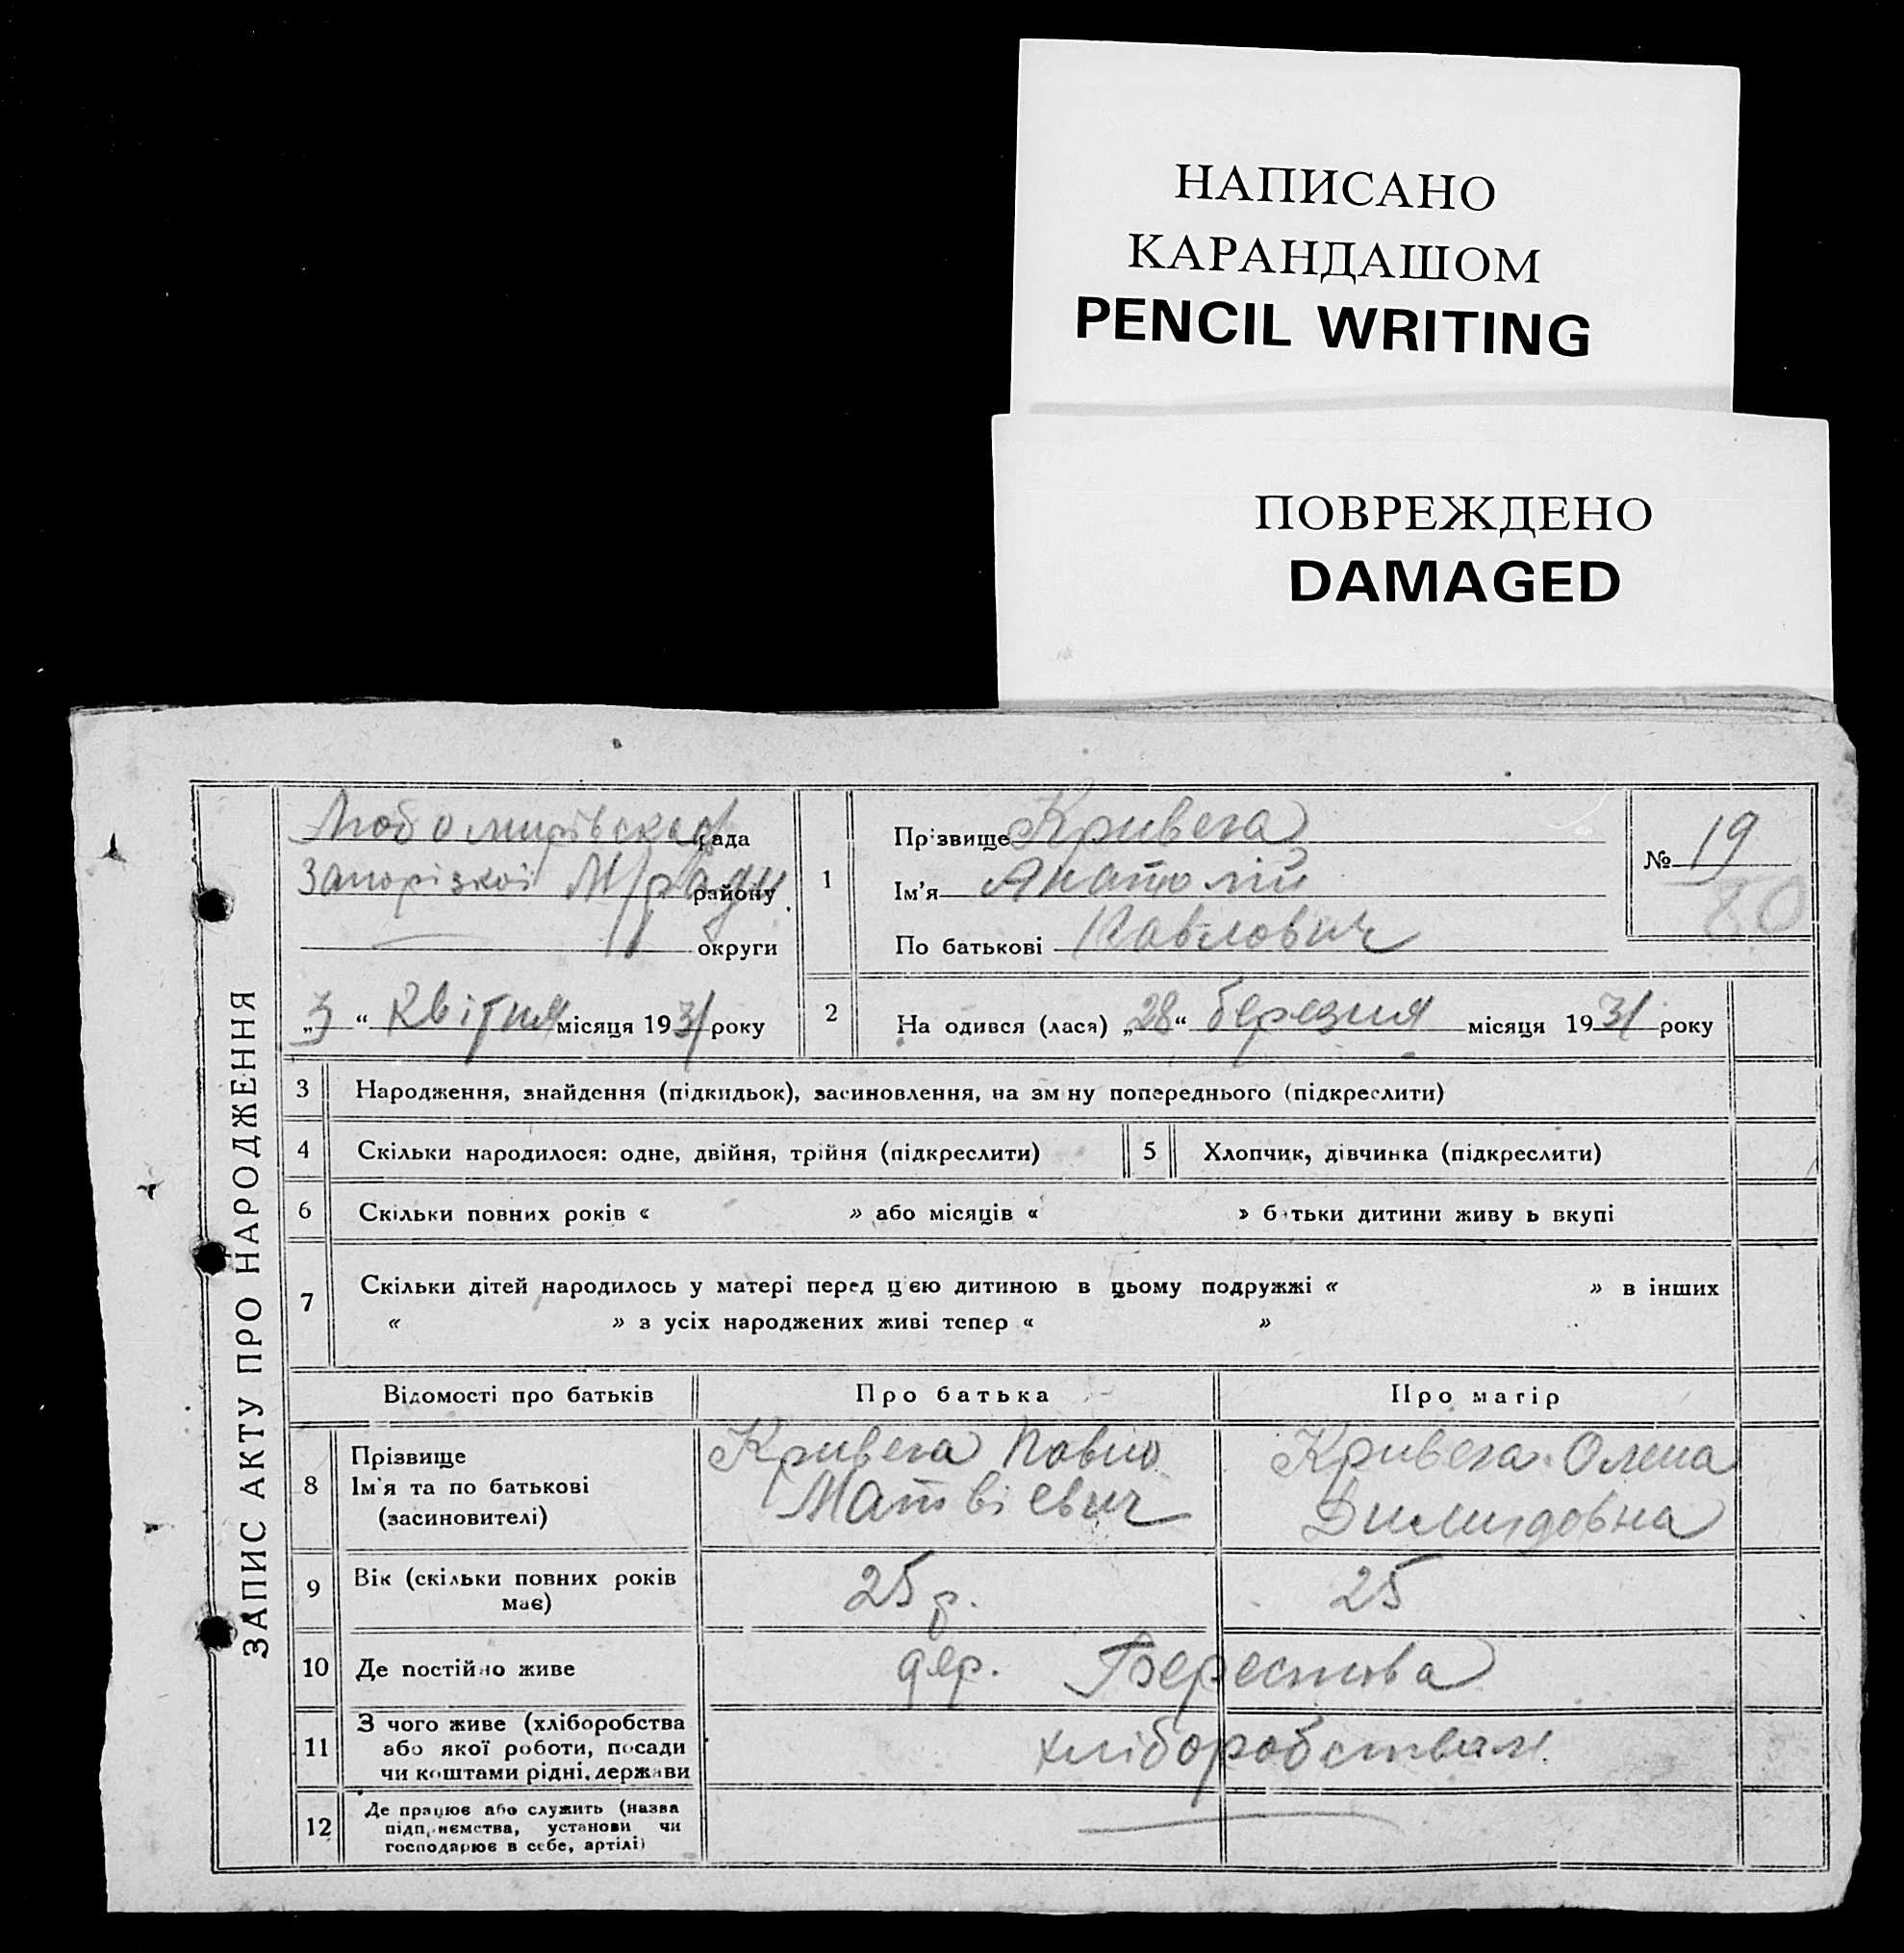 НАПИСАНО
КАРАНДАШОМ
PENCIL WRITING
ПОВРЕЖДЕНО
DAMAGED
ЗАПИС АКТУ ПРО НАРОДЖЕННЯ
Любомирівская рада
Запорізкої М/ради району
округи
„3“ Квітня місяця 1931 року
1
Прізвище Кривега
Ім'я Анатолій
По батькові Павлович
№ 19
80
2 На одився (лася) „28“ березня місяця 1931 року
3 Народження, знайдення (підкидьок), засиновлення, на зм ну попереднього (підкреслити)
4 Скільки народилося: одне, двійня, трійня (підкреслити) 5 Хлопчик, дівчинка (підкреслити)
6 Скільки повних років « » або місяців « » б тьки дитини живу ь вкупі
7 Скільки дітей народилось у матері перед цією дитиною в цьому подружжі « » в інших
« » з усіх народжених живі тепер « »
Відомості про батьків Про батька Про матір
8 Прізвище
Ім'я та по батькові
(засиновителі)
Кривега Павло
Матвієвич
Кривега Олена
Димидовна
9 Вік (скільки повних років
має)
25 р. 25
10 Де постійно живе дер. Берестова
11 З чого живе (хліборобства
або якої роботи, посади
чи коштами рідні, держави
хліборобствам
12 Де працює або служить (назва
підприємства, установи чи
господарює в себе, артілі)